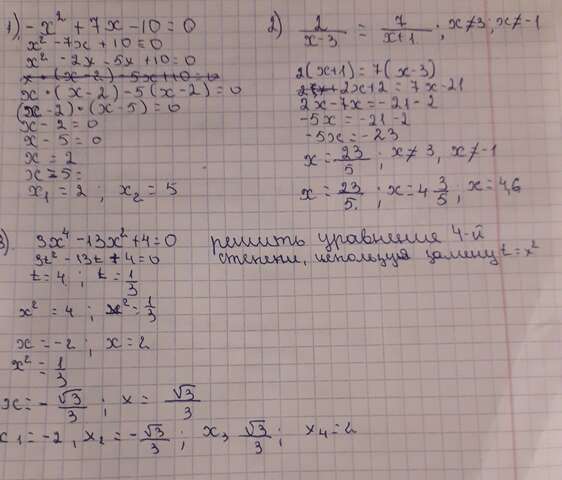 1) -x² + 7x - 10 = 0
x² - 7x + 10 = 0
x² - 2x - 5x + 10 = 0
x · (x - 2) - 5(x - 2) = 0
(x - 2) · (x - 5) = 0
x - 2 = 0
x - 5 = 0
x = 2
x = 5
x₁ = 2 ; x₂ = 5
2) 2/(x-3) = 7/(x+1) ; x≠3 ; x≠-1
2(x+1) = 7(x-3)
2x+2 = 7x-21
2x-7x = -21-2
-5x = -21-2
-5x = -23
x = 23/5 ; x≠3, x≠-1
x = 23/5 ; x = 4 3/5 ; x = 4,6
3) 3x⁴ - 13x² + 4 = 0 решить уравнение 4-й
3t² - 13t + 4 = 0 степени, используя замену t = x²
t = 4 ; t = 1/3
x² = 4 ; x² = 1/3
x = -2 ; x = 2
x² = 1/3
x = -√3/3 ; x = √3/3
x₁ = -2, x₂ = -√3/3 ; x₃ √3/3 ; x₄ = 2